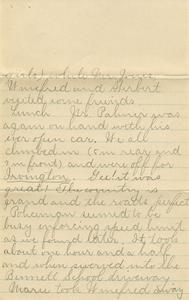 while Mr. Jones,
Winifred and Herbert
visited some friends
Lunch. Mr. Palmer was
again on hand with his
ever open car. We all
climbed in (5 in rear and
2 in front) and were off for
Irvington. Gee it was
great! The country is
grand and the roads perfect
Policeman seemed to be
busy enforcing speed limit
as we found later. It took
about one hour and a half
and when we turned into the
Bennett School driveway
Marie took Winifred away